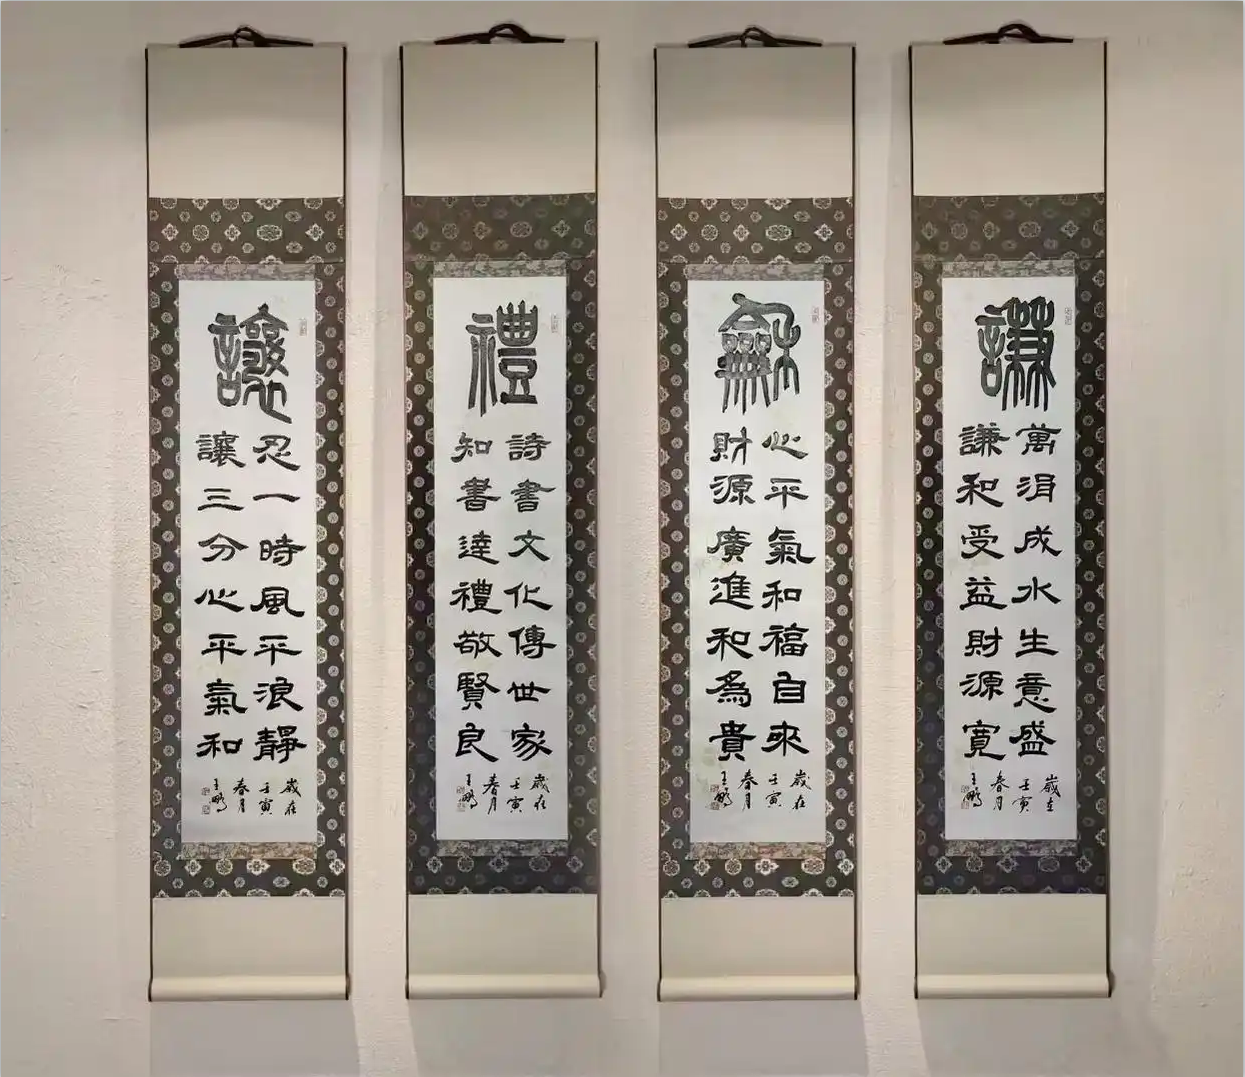 謙
萬涓成水生意盛
謙和受益財源寬
歲在
壬寅
春月
王鵬
龢
心平氣和福自來
財源廣進和為貴
歲在
壬寅
春月
王鵬
禮
詩書文化傳世家
知書達禮敬賢良
歲在
壬寅
春月
王鵬
讓
忍一時風平浪靜
讓三分心平氣和
歲在
壬寅
春月
王鵬